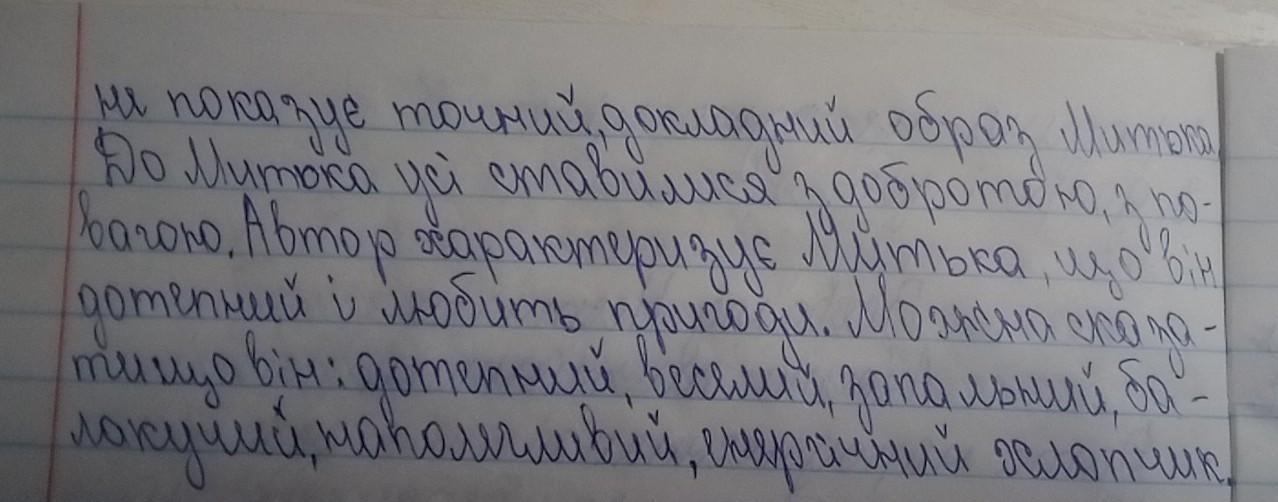 на показує точний, докладний образ Митька.
До Митька усі ставилися з добротою, з по-
вагою. Автор характеризує Митька, що він
дотепний і любить пригоди. Можна сказа-
ти що він: дотепний, веселий, запальний, ба-
лакучий, наполегливий, енергічний хлопчик.